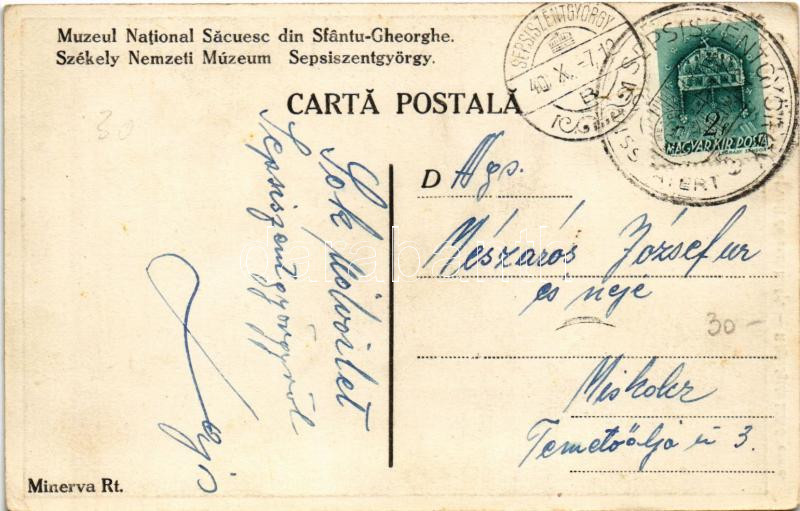 Muzeul Național Săcuesc din Sfântu-Gheorghe.
Székely Nemzeti Múzeum Sepsiszentgyörgy.
CARTĂ POSTALĂ
SEPSISZENTGYÖRGY
40 X. -7. 12
B
SEPSISZENTGYÖRGY
VISSZATÉRT
2
MAGYAR KIR. POSTA
30
Sok üdvözlet
Sepsiszentgyörgyről
D
Mészáros József úr
és neje
30 -
Miskolc
Temetőalja u 3.
Minerva Rt.